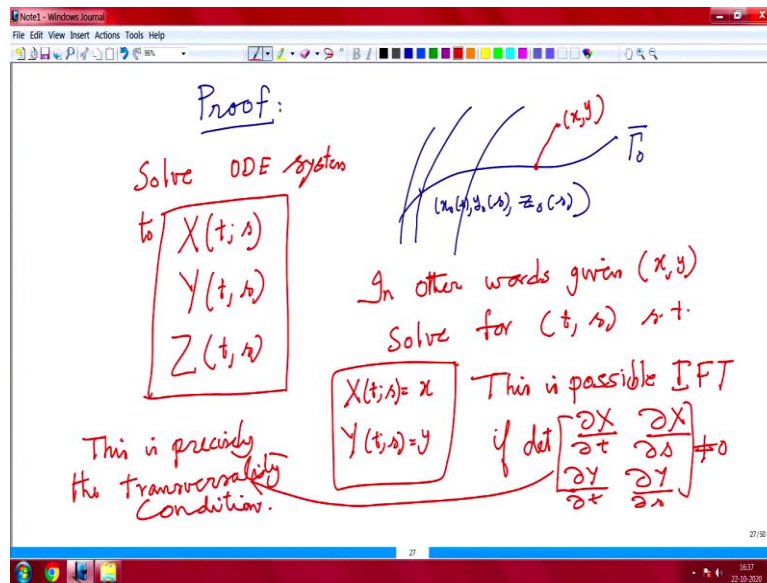 Note1 - Windows Journal
File Edit View Insert Actions Tools Help
96%
B I
Proof:
(x,y)
Γ̅₀
Solve ODE system
(x₀(s), y₀(s), z₀(s))
to X(t; s)
Y(t, s)
Z(t, s)
In other words given (x, y)
Solve for (t, s) s.t.
X(t; s) = x
Y(t; s) = y
This is possible IFT
if det [∂X/∂t ∂X/∂s
∂Y/∂t ∂Y/∂s] ≠ 0
This is precisely
the transversality
Condition.
27/50
27
16:37
22-10-2020